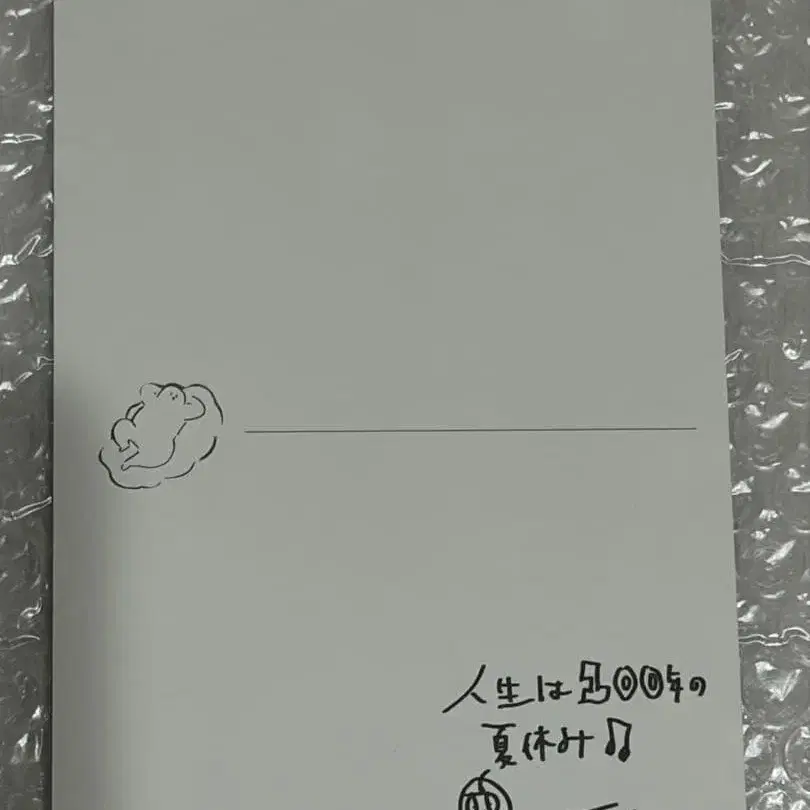 人生は100年の
夏休み♫